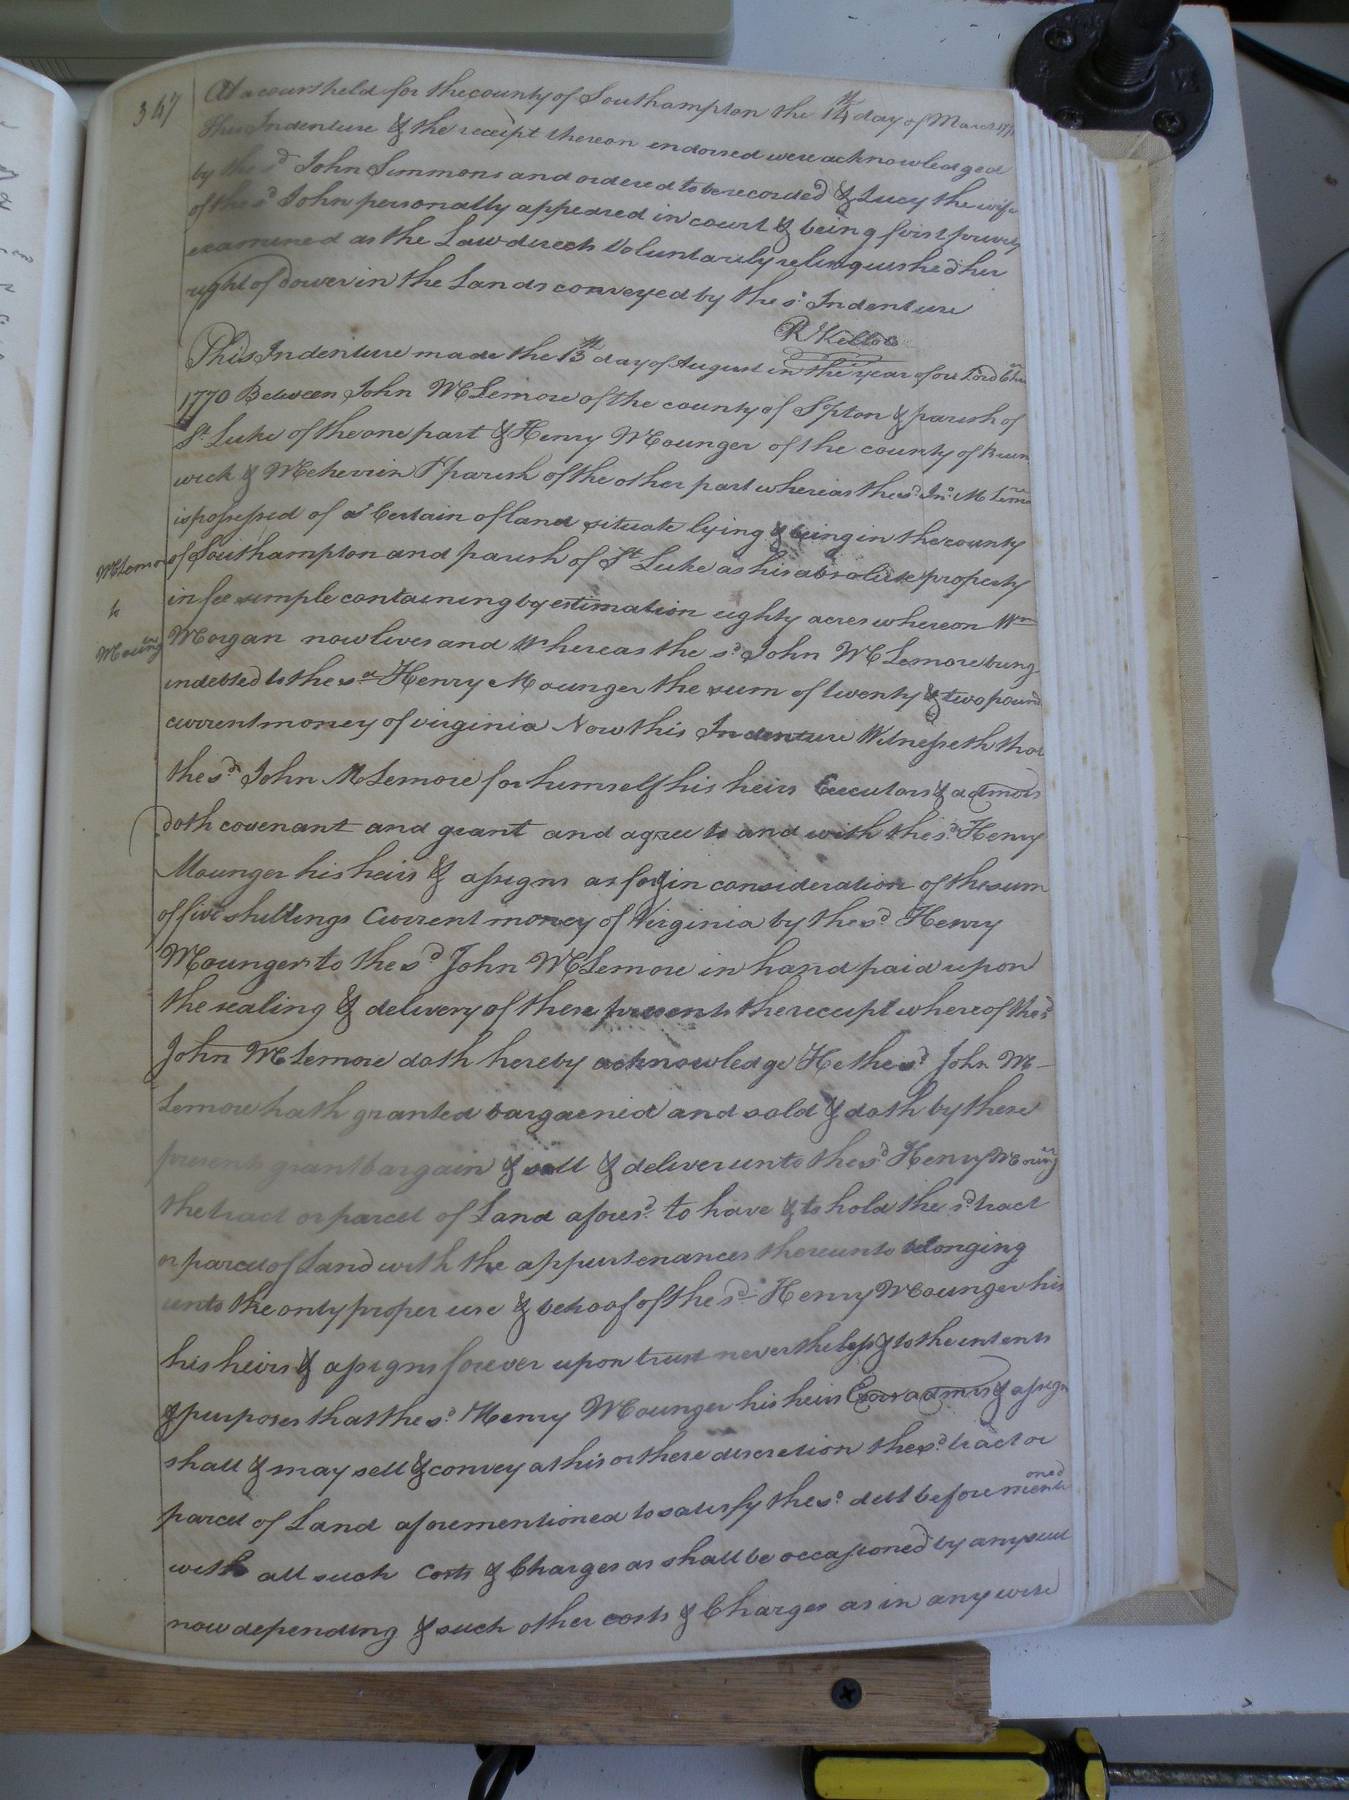 347
At a court held for the county of Southampton the 14th day of March 177
this Indenture & the receipt thereon endorsed were acknowledged
by the sd John Simmons and ordered to be recorded & Lucy the wife
of the sd John personally appeared in court & being first privily
examined as the Law directs Voluntarily relinquished her
right of dower in the Lands conveyed by the sd Indenture
R Kello
This Indenture made the 13th day of August in the year of our Lord
1770 Between John McLemore of the county of Sopton & parish of
St Luke of the one part & Henry Mounger of the county of Brun
wick & Meherrin parish of the other part whereas the sd Jno McLemo
is possessed of a Certain of land situate lying & being in the county
of Southampton and parish of St Luke as his absolute property
in fee simple containing by estimation eighty acres whereon Wm
Morgan now lives and Whereas the sd John McLemore being
indebted to the sd Henry Mounger the sum of twenty & two pound
current money of virginia Now this Indenture Witnesseth that
the sd John McLemore for himself his heirs Executors & admors
doth covenant and grant and agree to and with the sd Henry
Mounger his heirs & assigns as for & in consideration of the sum
of five shillings Current money of Virginia by the sd Henry
Mounger to the sd John McLemore in hand paid upon
the sealing & delivery of these presents the receipt whereof the sd
John McLemore doth hereby acknowledge He the sd John Mc
Lemore hath granted bargained and sold & doth by these
presents grant bargain & sell & deliver unto the sd Henry Mounger
the tract or parcel of Land aforesd. to have & to hold the sd tract
or parcel of Land with the appurtenances thereunto belonging
unto the only proper use & behoof of the sd Henry Mounger his
his heirs & assigns forever upon trust nevertheless & to the intents
& purposes that the sd Henry Mounger his heirs Exors admrs & assigns
shall & may sell & convey at his or there discretion the sd tract or
parcel of Land aforementioned to satisfy the sd debt before mentioned
with all such Costs & Charges as shall be occasioned by any suit
now depending & such other costs & Charges as in any wise
McLemore
to
Mounger